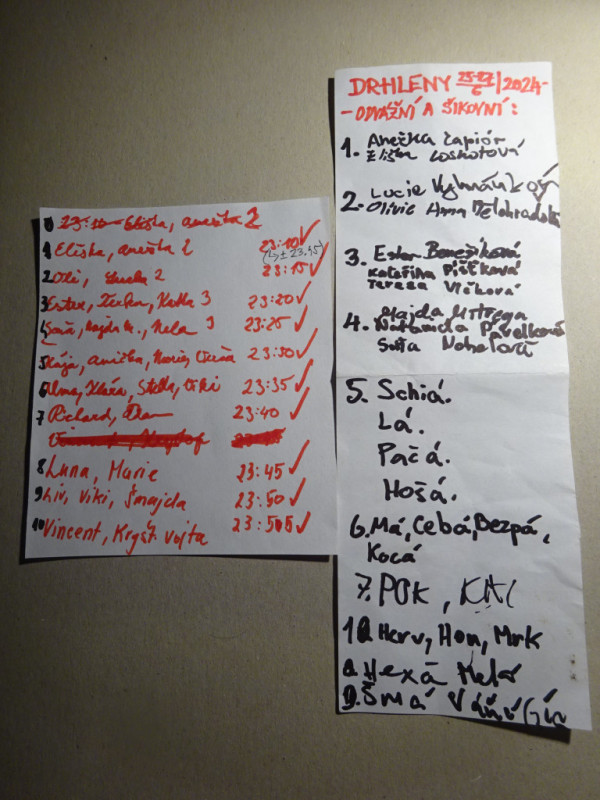 23:10 Eliška, anežka 2
1 Eliška, anežka 2 23:10 ✓
(↳ ± 23.15)
2 Oli, 2 23:15 ✓
3 Ester, Terka, Katka 3 23:20 ✓
4 Soňa, majda m., Nela 3 23:25 ✓
5 Kája, anička, 23:30 ✓
6 Alma, Klára, Stella, Viki 23:35 ✓
7 Richard, 23:40 ✓
8 Luna, Marie 23:45 ✓
9 Liv, Viki, Šmajda 23:50 ✓
10 Vincent, Kryšt. vojta 23:505 ✓
DRHLENY /2024-
- ODVÁŽNÍ A ŠIKOVNÍ:
1. Anežka Čapiór
Eliška Loskotová
2. Lucie
Olivie Anna
3. Ester Benešíková
Kateřina Pištková
Tereza Vlčková
Majda Mstrega
4. Pavelková
Nohelová
5. Schiá.
Lá.
Pačá.
Hošá.
6. Má, Cebá, Bezpá,
Kocá
7. POK,
10 Herv, Hon, Mrk
Hexá
9. Šmá